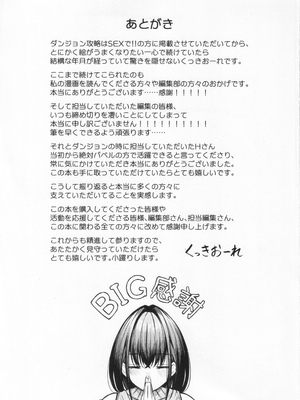 あとがき
ダンジョン攻略はSEXで!!の方に掲載させていただいてから、
とにかく絵がうまくなりたい一心で続けていたら
結構な年月が経っていて驚きを隠せないくっきおーれです。
ここまで続けてこられたのも
私の漫画を読んでくださる方々や編集部の方々のおかげです。
本当にありがとうございます……感謝!!!!!!
そして担当していただいた編集の皆様、
いつも締め切りを凄いことにしてしまって
本当に申し訳ございません!!!!!!!!!!
筆を早くできるよう頑張ります…
それとダンジョンの時に担当していただいたHさん
当初から絶対バベルの方で活躍できると言ってくださり、
常に気にかけていただき本当にありがとうございました。
この本も手に取っていただけていたらとても嬉しいです。
こうして振り返ると本当に多くの方々に
支えていただいてることを実感します。
この本を購入してくださった皆様や
活動を応援してくださる皆様、編集部さん、担当編集さん、
この本に関わる全ての方々に改めて感謝申し上げます。
これからも精進して参りますので、
あたたかく見守っていただけたら
とても嬉しいです。小躍りします。
くっきおーれ
BIG感謝